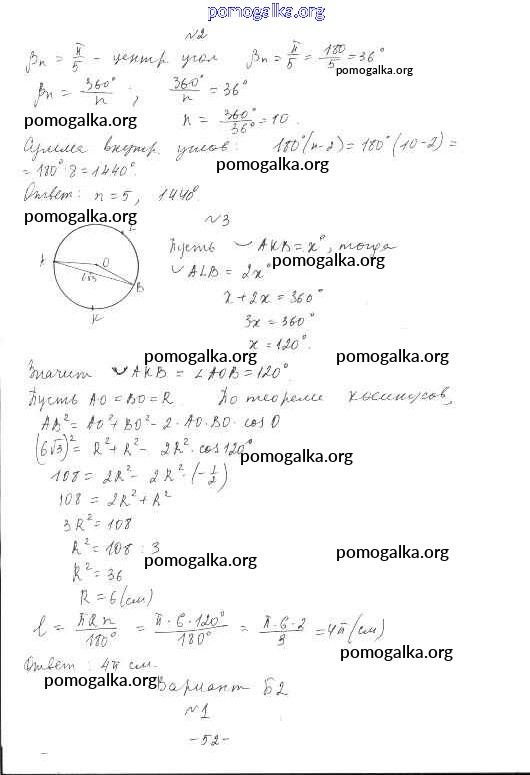 pomogalka.org
№2
βn = π/5 - центр угол βn = π/5 = 180/5 = 36°
pomogalka.org
βn = 360°/n ; 360°/n = 36°
pomogalka.org
n = 360°/36° = 10.
Сумма внутр. углов: 180°(n-2) = 180°(10-2) =
= 180°·8 = 1440°.
pomogalka.org
Ответ: n = 5, 1440°.
pomogalka.org
№3
A O B K 6√3
Пусть ◡AKB = x°, тогда
◡ALB = 2x°
pomogalka.org
x + 2x = 360°
3x = 360°
x = 120°.
pomogalka.org pomogalka.org
Значит ◡AKB = ∠AOB = 120°
Пусть AO = BO = R. По теореме косинусов,
AB² = AO² + BO² - 2·AO·BO·cos O
(6√3)² = R² + R² - 2R²·cos 120°
pomogalka.org
108 = 2R² - 2R²·(-1/2)
108 = 2R² + R²
3R² = 108
R² = 108 : 3
pomogalka.org pomogalka.org
R² = 36
R = 6 (см)
l = πRn/180° = π·6·120°/180° = π·6·2/3 = 4π (см)
pomogalka.org
Ответ: 4π см.
pomogalka.org
Вариант Б2
№1
-52-